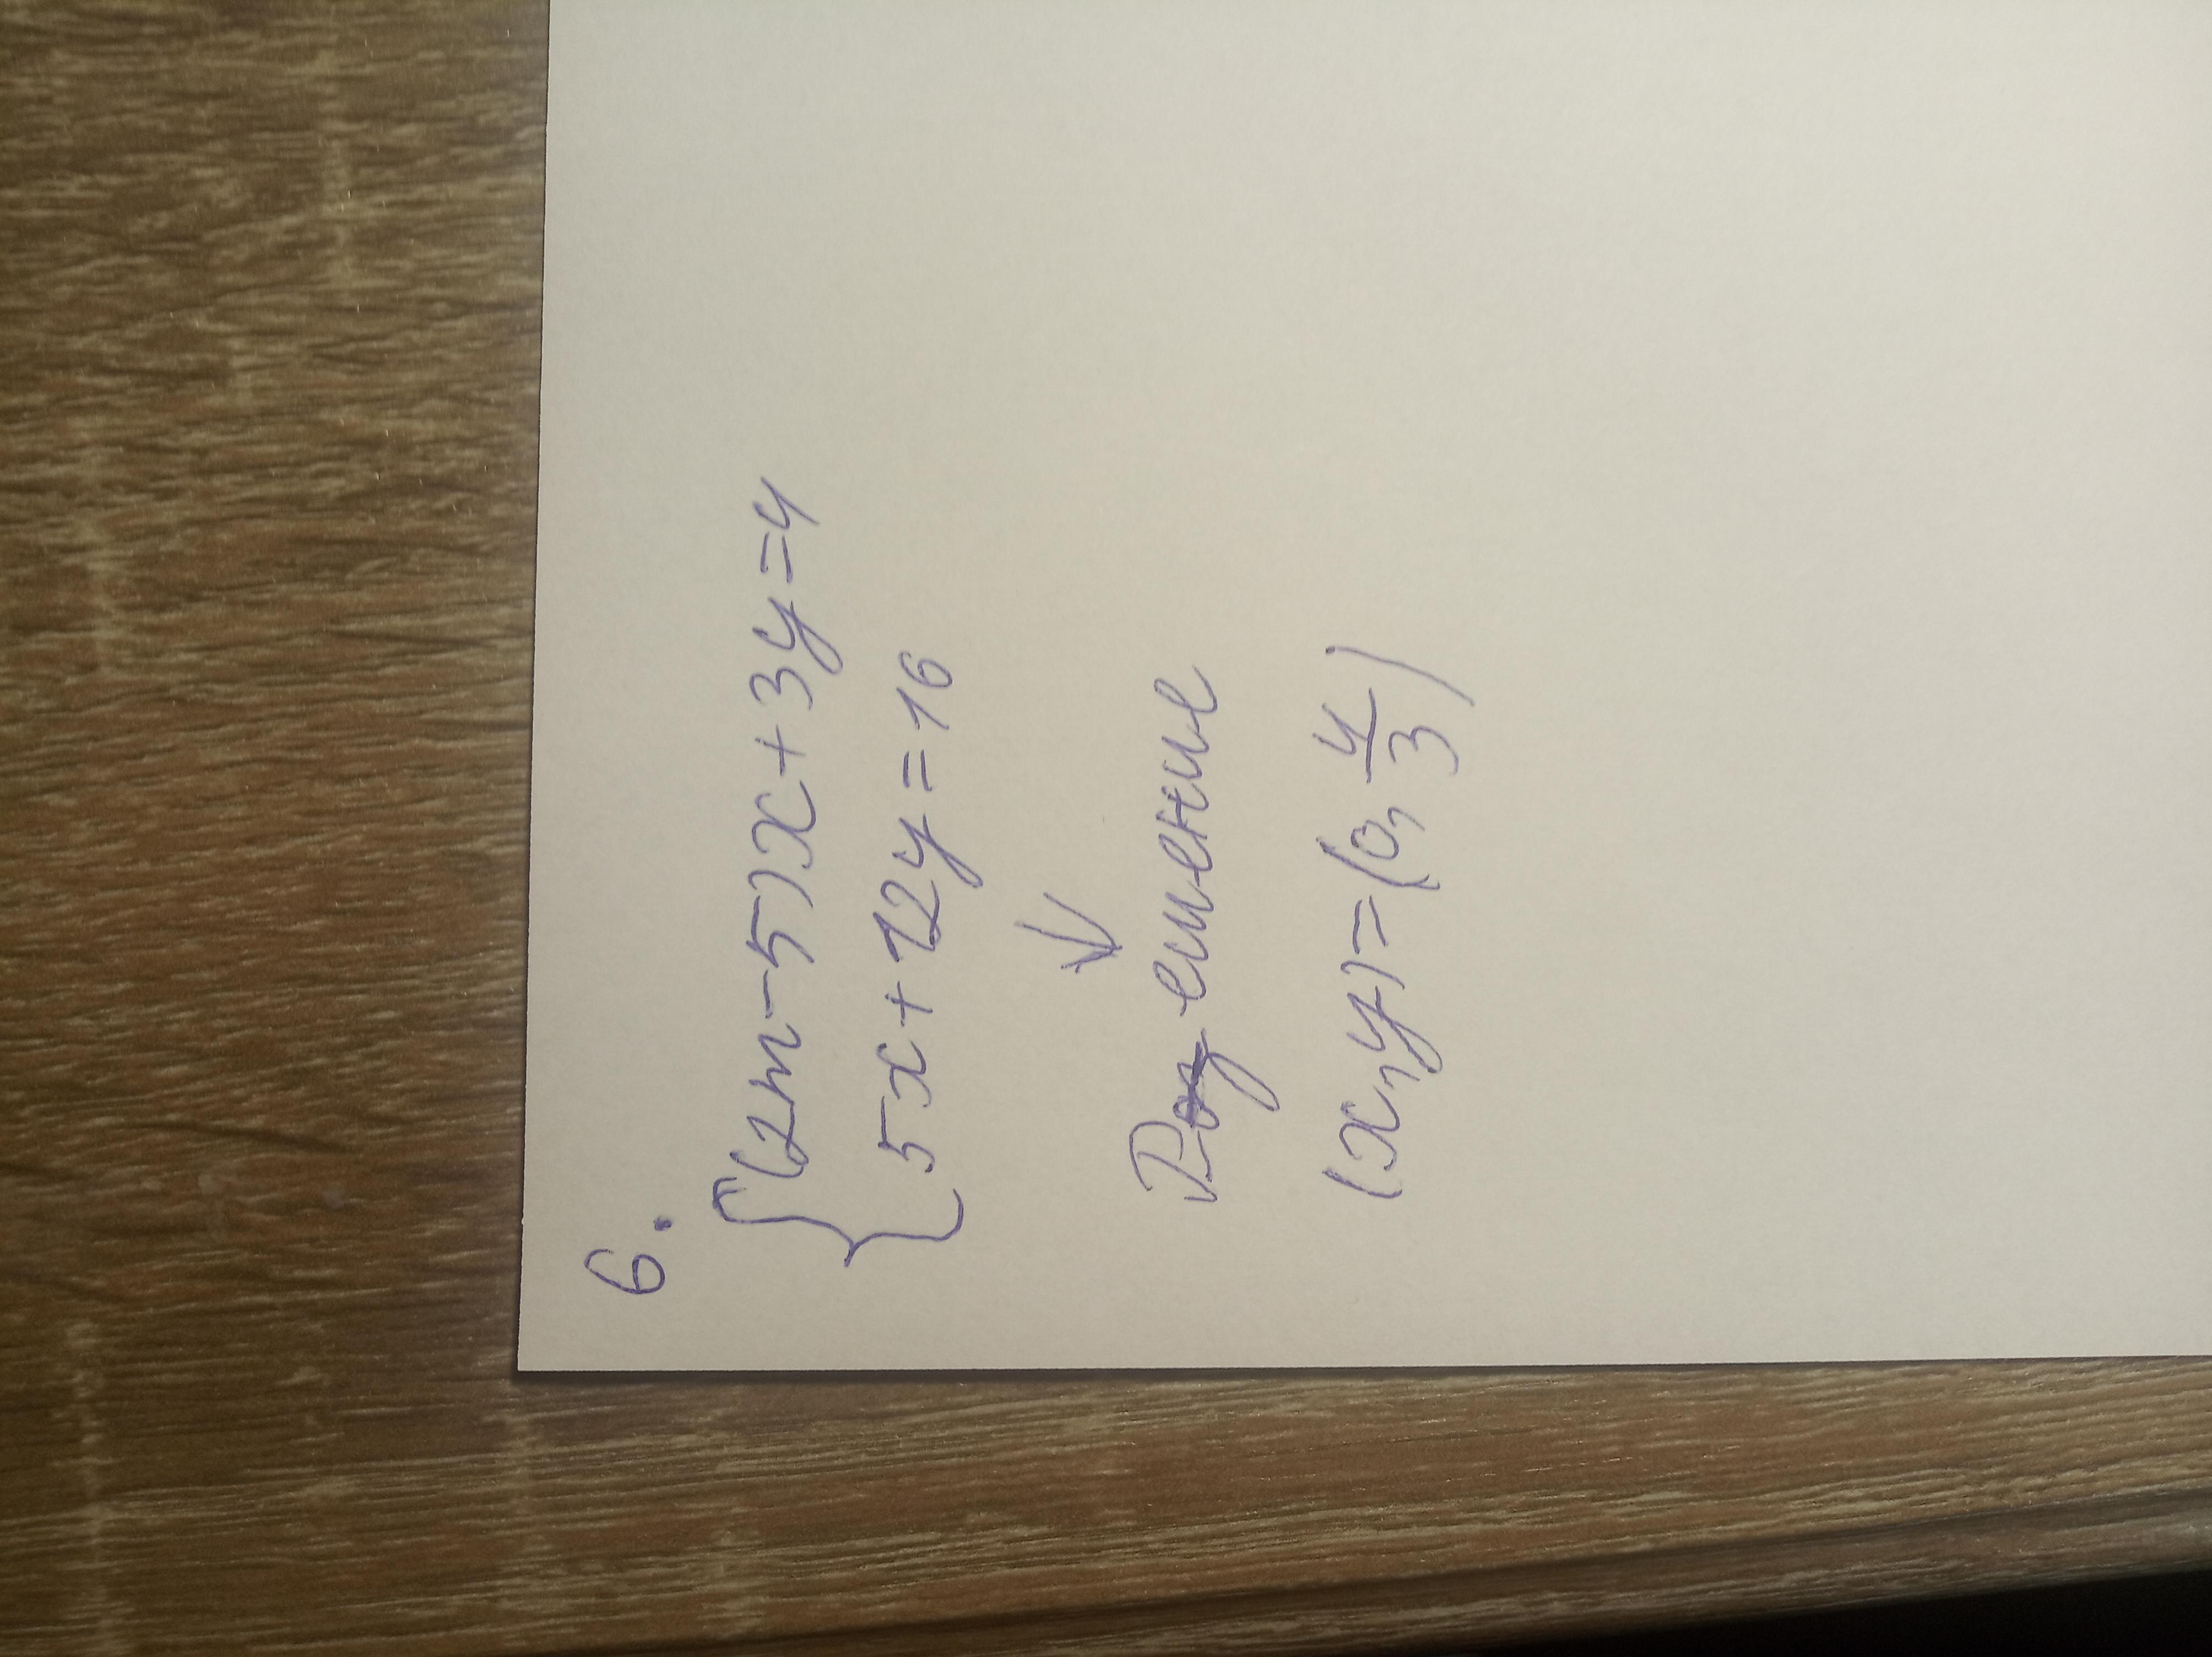 6.
{(2m-5)x+3y=4
5x+12y=16
↓
Решение
(x,y)=(0, 4/3)